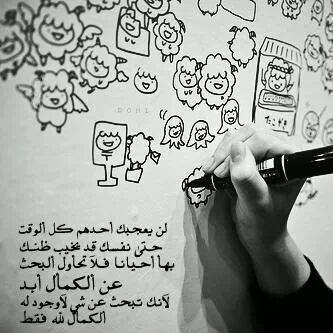 DOHI
たこやき
لن يعجبك أحدهم كل ألوقت
حتى نفسك قد يخيب ظنك
بها أحيانا فلا تحاول ألبحث
عن ألكمال أبد
لأنك تبحث عن شي لاوجود له
ألكمال لله فقط